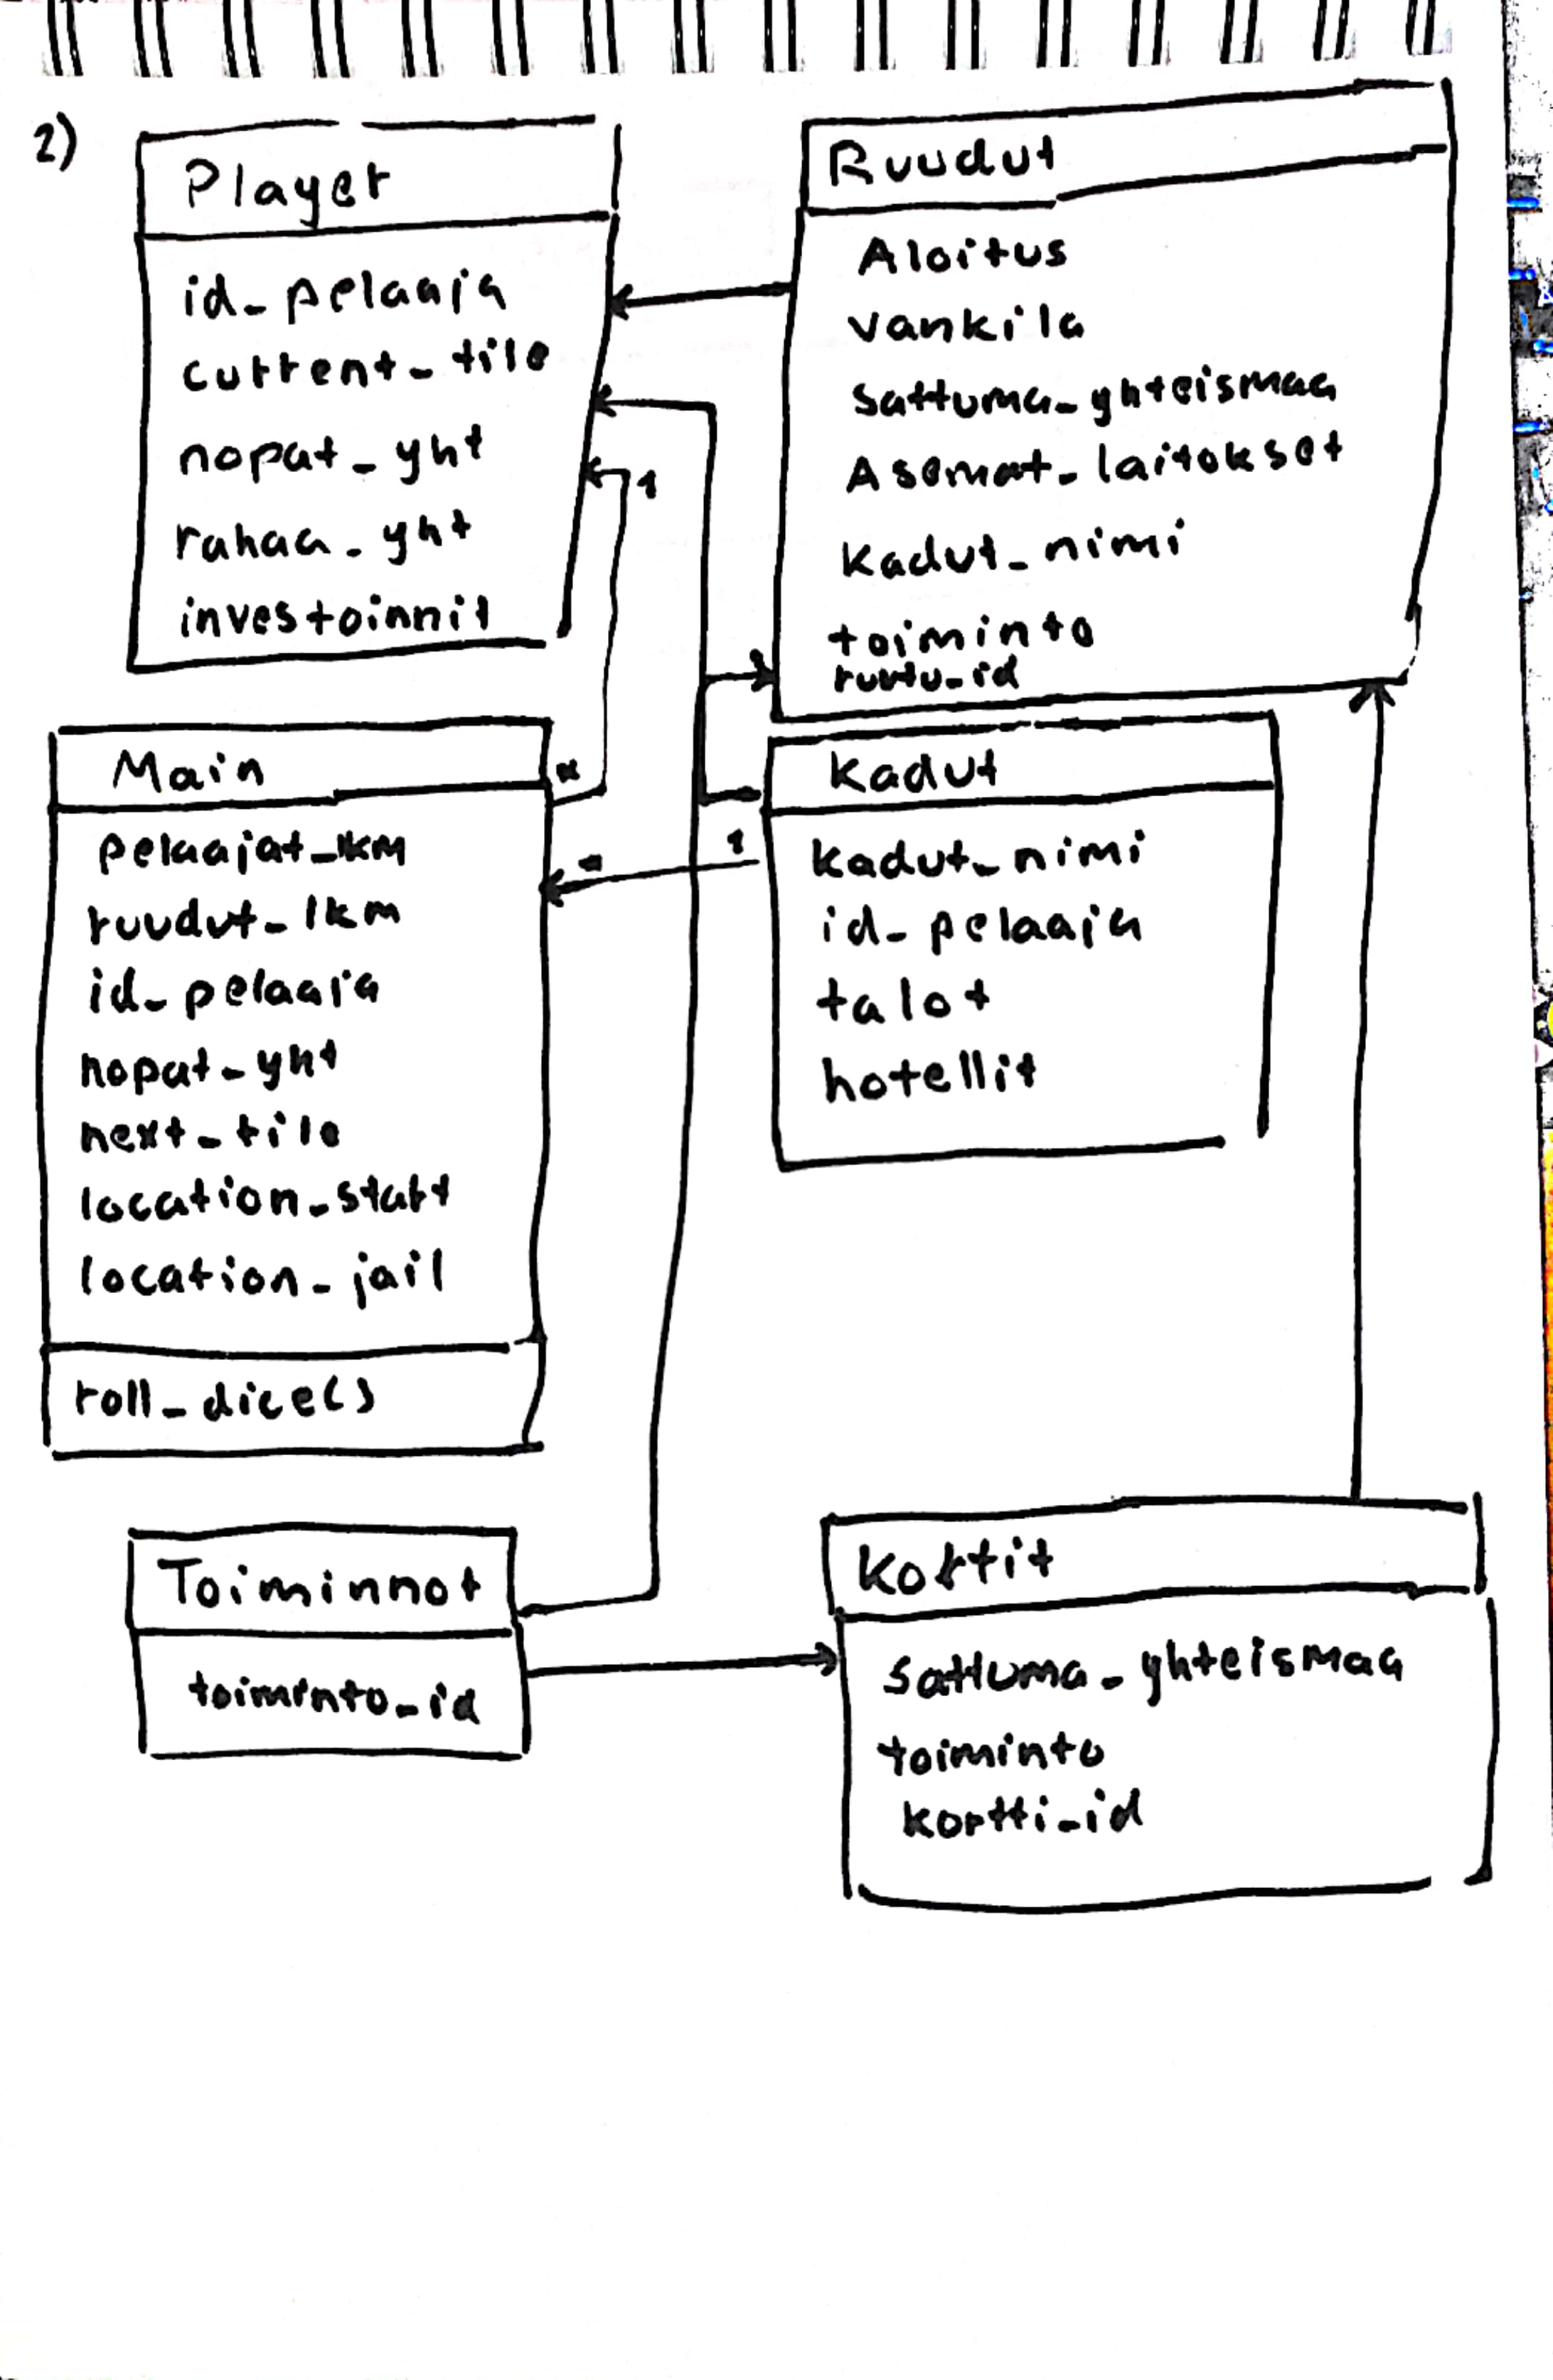 2)
Player
id_pelaaja
current_tile
nopat_yht
rahaa_yht
investoinnit
Ruudut
Aloitus
vankila
sattuma_yhteismaa
Asemat_laitokset
kadut_nimi
toiminto
ruutu_id
1
*
Main
pelaajat_lkm
ruudut_lkm
id_pelaaja
nopat_yht
next_tile
location_start
location_jail
roll_dice()
* 1
Kadut
kadut_nimi
id_pelaaja
talot
hotellit
Toiminnot
toiminto_id
Kortit
sattuma_yhteismaa
toiminto
kortti_id